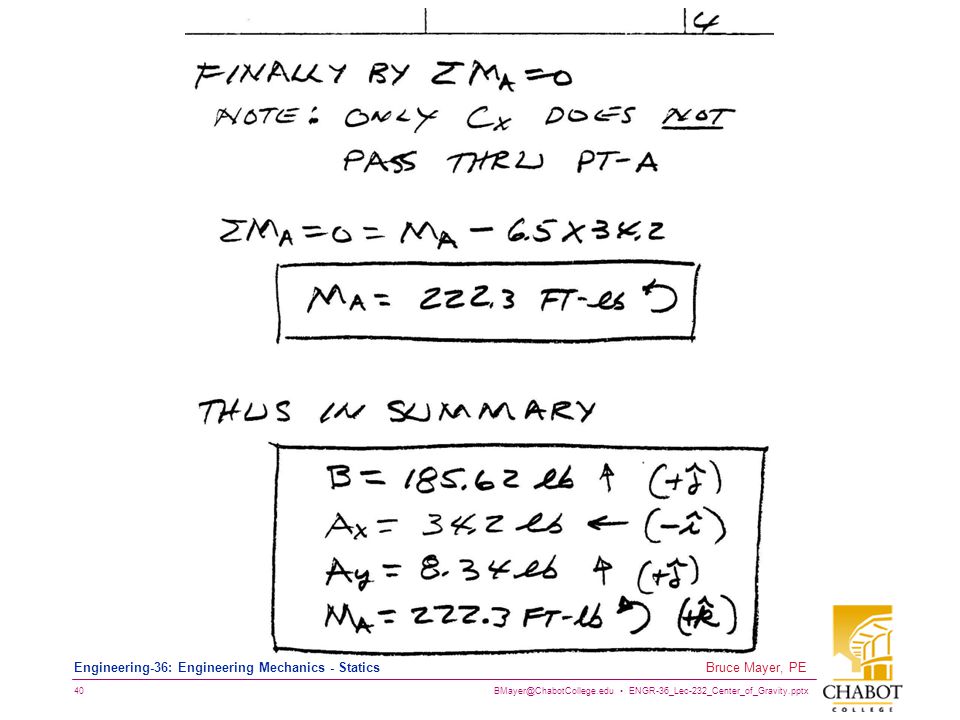 4
FINALLY BY ΣM_A=0
NOTE: ONLY C_x DOES NOT
PASS THRU PT-A
ΣM_A=0= M_A - 6.5X34.2
M_A= 222.3 FT-lb ↺
THUS IN SUMMARY
B= 185.62 lb ↑ (+ĵ)
A_x= 34.2 lb ← (-î)
A_y= 8.34 lb ↑ (+ĵ)
M_A= 222.3 FT-lb ↺ (+k̂)
Engineering-36: Engineering Mechanics - Statics Bruce Mayer, PE
40 BMayer@ChabotCollege.edu • ENGR-36_Lec-232_Center_of_Gravity.pptx
CHABOT
COLLEGE